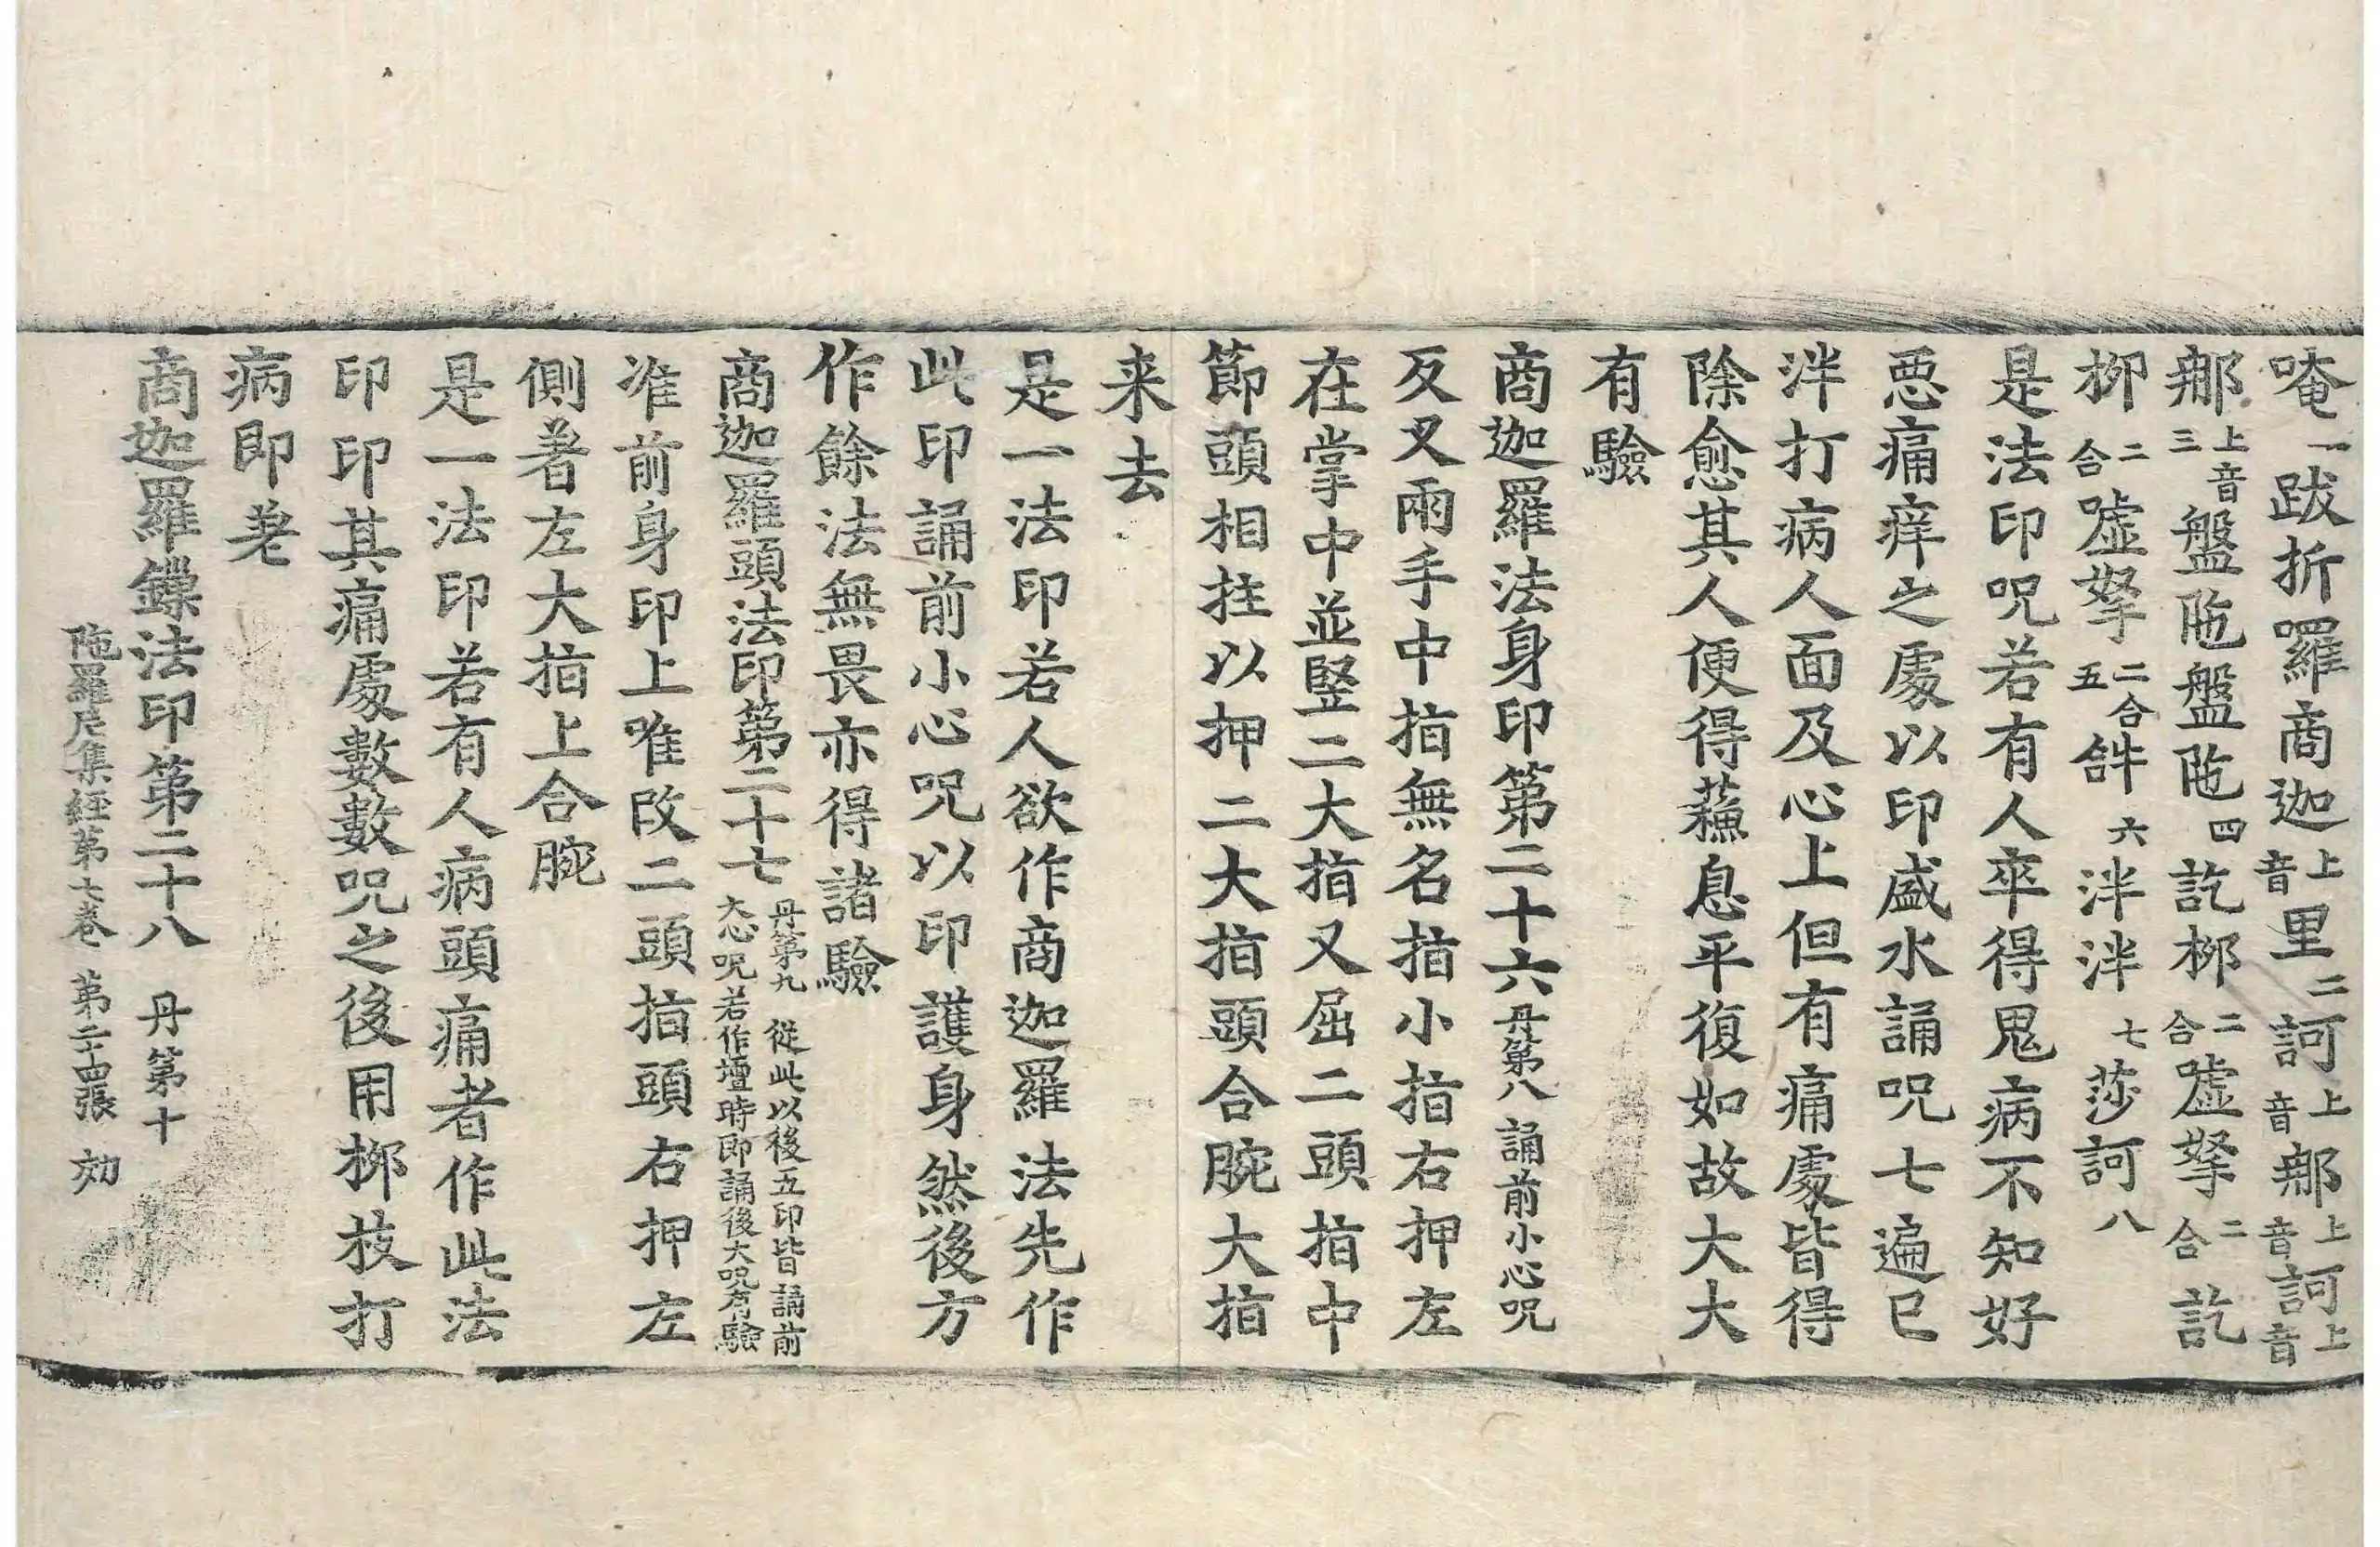 唵一跋折囉商迦上音里二訶上音那上音訶上音
那上音三盤陁盤陁四訖栁二合嘘拏二合訖
栁二合嘘拏二合五𤙖六泮泮七莎訶八
是法印呪若有人卒得鬼病不知好
惡痛痒之處以印盛水誦呪七遍已
泮打病人面及心上但有痛處皆得
除愈其人便得蘓息平復如故大大
有驗
商迦羅法身印第二十六丹第八誦前小心呪
反叉兩手中指無名指小指右押左
在掌中並竪二大指又屈二頭指中
節頭相拄以押二大指頭合腕大指
来去
是一法印若人欲作商迦羅法先作
此印誦前小心呪以印護身然後方
作餘法無畏亦得諸驗
商迦羅頭法印第二十七丹第九從此以後五印皆誦前大心呪若作壇時即誦後大呪有驗
准前身印上唯改二頭指頭右押左
側著左大指上合腕
是一法印若有人病頭痛者作此法
印印其痛處數數呪之後用栁枝打
病即差
商迦羅鏁法印第二十八丹第十
陁羅尼集經第七卷 第二十四張 効